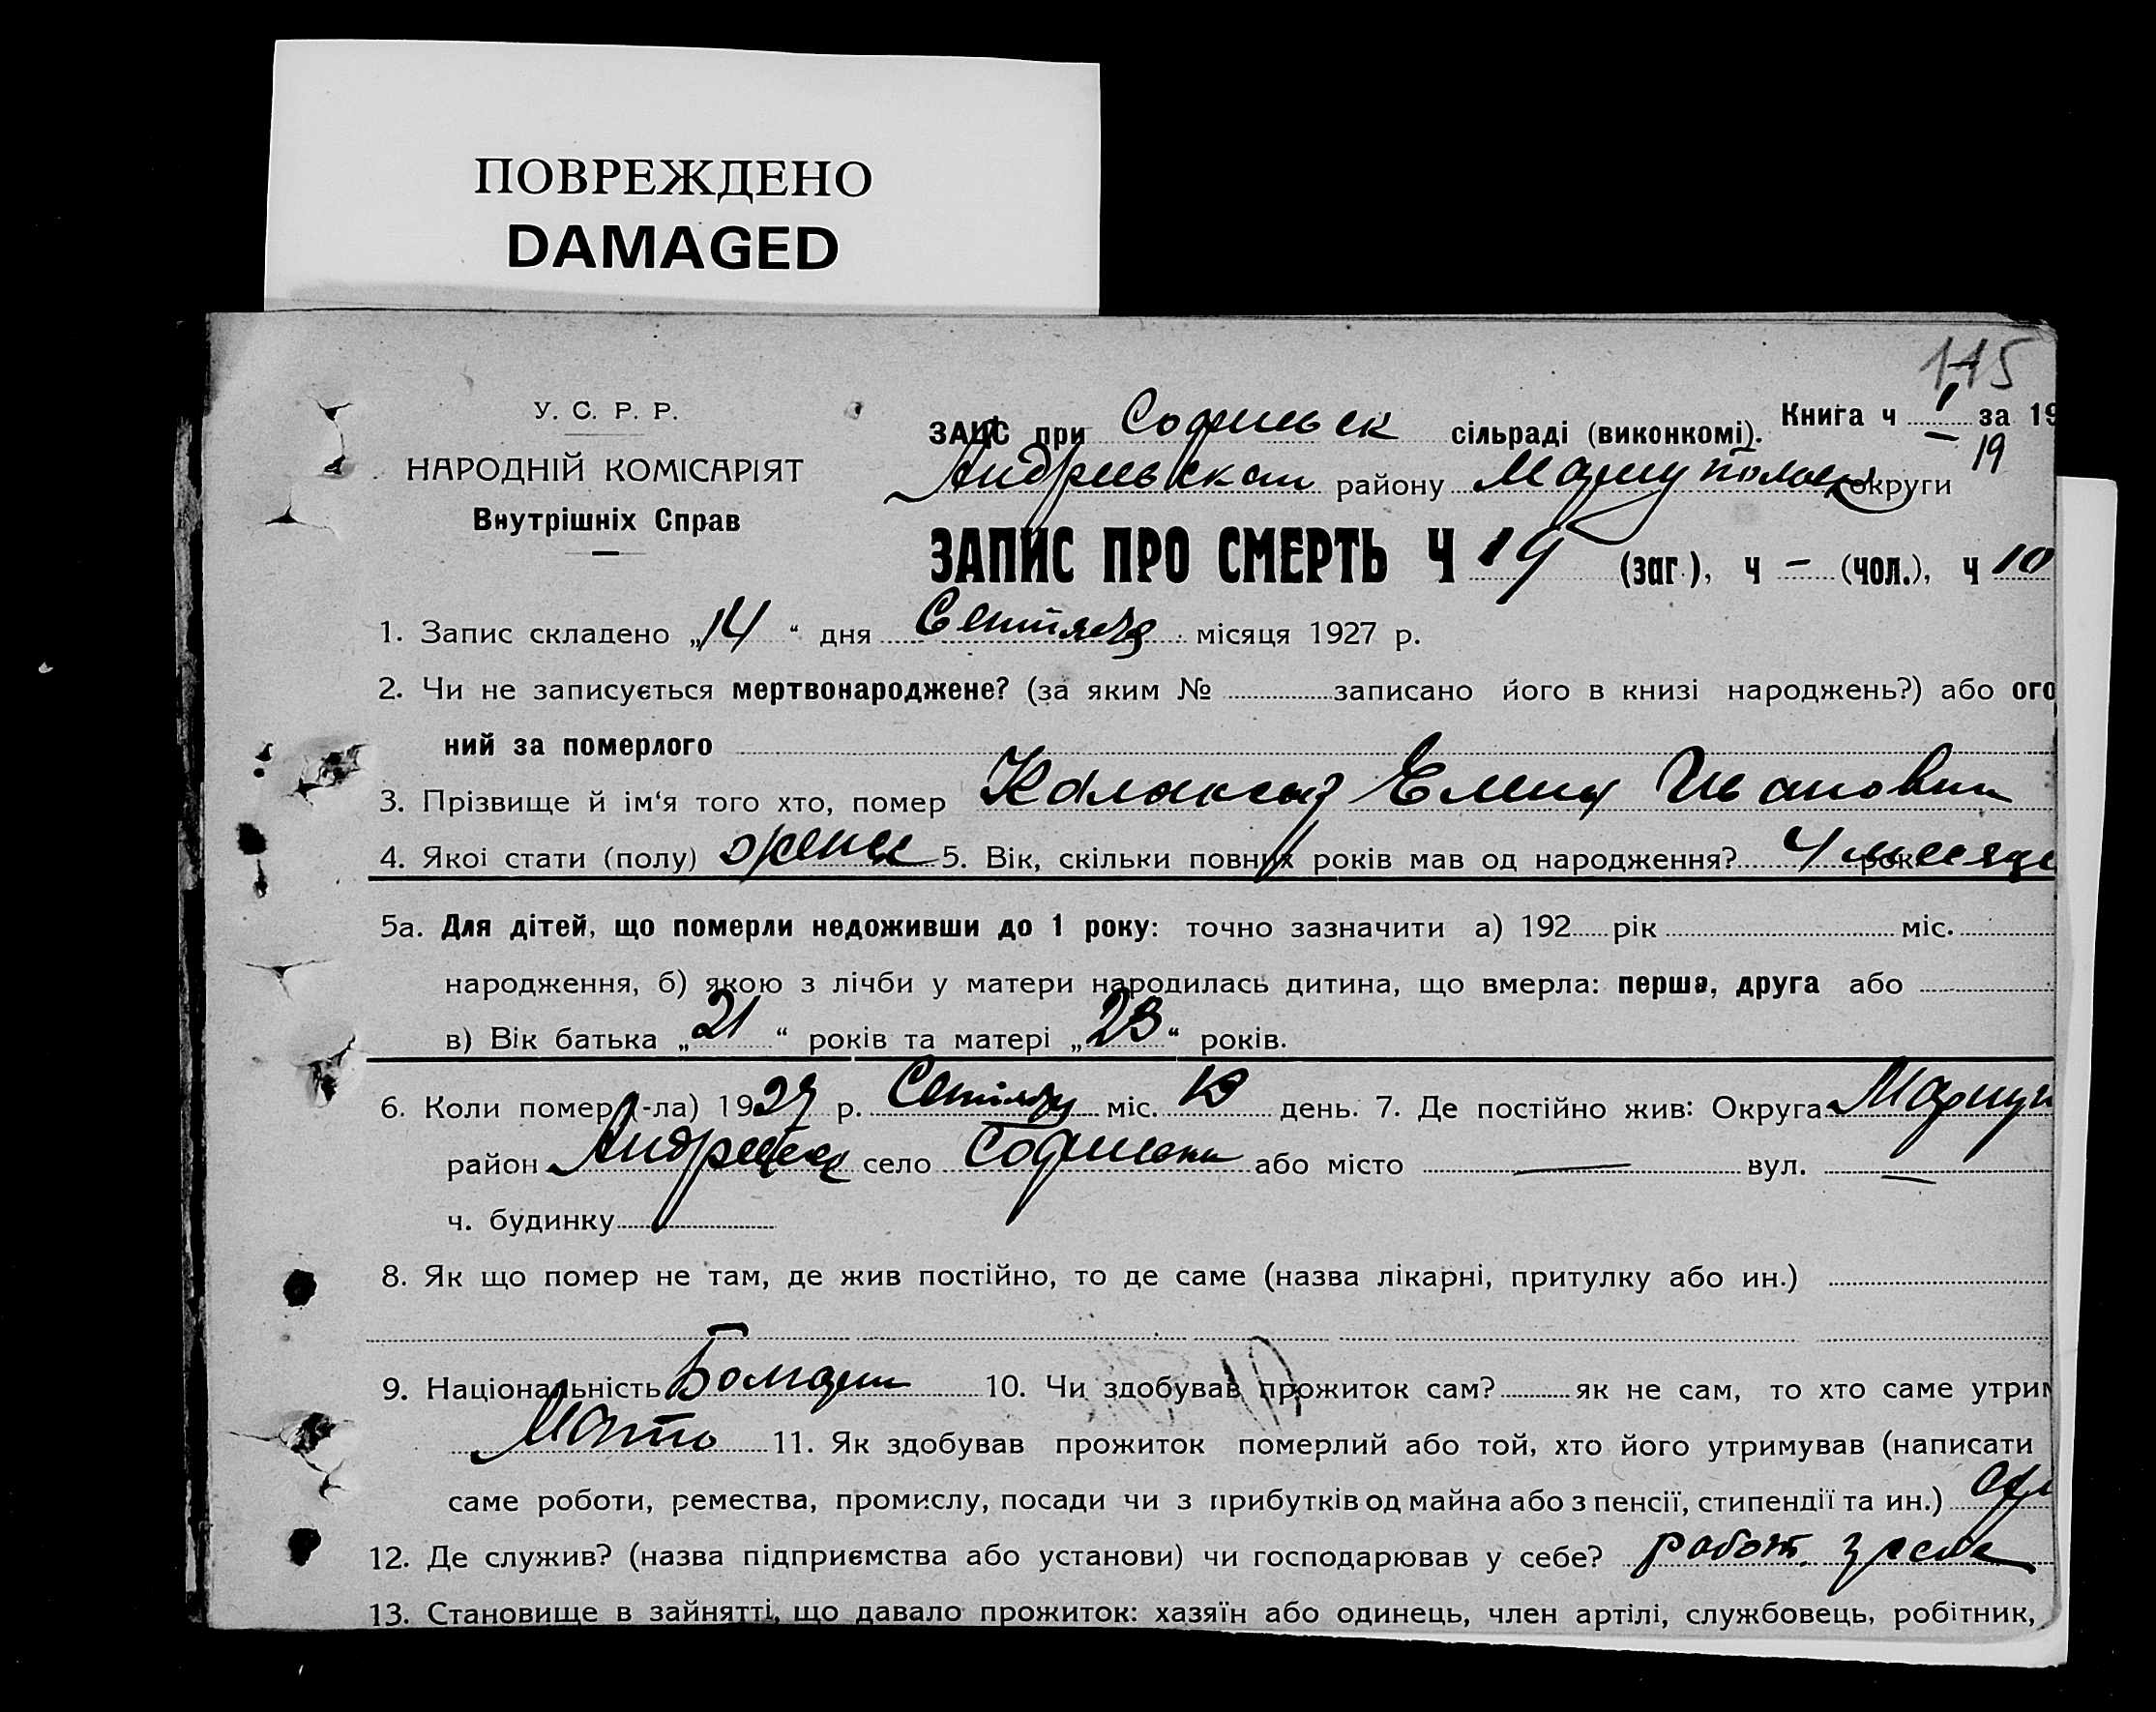 ПОВРЕЖДЕНО
DAMAGED
115
У. С. Р. Р.
НАРОДНІЙ КОМІСАРІЯТ
Внутрішніх Справ
ЗАЦС при Софиевск сільраді (виконкомі). Книга ч I за 19
19
Андриевском району Мариупольск округи
ЗАПИС ПРО СМЕРТЬ Ч 19 (заг.), ч — (чол.), ч 10
1. Запис складено „14“ дня Сентября місяця 1927 р.
2. Чи не записується мертвонароджене? (за яким № записано його в книзі народжень?) або ого
ний за померлого
3. Прізвище й ім‘я того хто, помер Елена Ивановна
4. Якоі стати (полу) женск 5. Вік, скільки повних років мав од народження? 4 месяца рок
5а. Для дітей, що померли недоживши до 1 року: точно зазначити а) 192 рік міс.
народження, б) якою з лічби у матери народилась дитина, що вмерла: перша, друга або
в) Вік батька „21“ років та матері „23“ років.
6. Коли помер (-ла) 1927 р. Сентябр міс. 13 день. 7. Де постійно жив: Округа Мариуп
район Андреевск село Софиевка або місто — вул. —
ч. будинку
8. Як що помер не там, де жив постійно, то де саме (назва лікарні, притулку або ин.)
9. Національність Болгарин 10. Чи здобував прожиток сам? як не сам, то хто саме утрим
Мать 11. Як здобував прожиток померлий або той, хто його утримував (написати
саме роботи, ремества, промислу, посади чи з прибутків од майна або з пенсії, стипендії та ин.)
12. Де служив? (назва підприємства або установи) чи господарював у себе? работ.
13. Становище в зайнятті, що давало прожиток: хазяїн або одинець, член артілі, службовець, робітник,